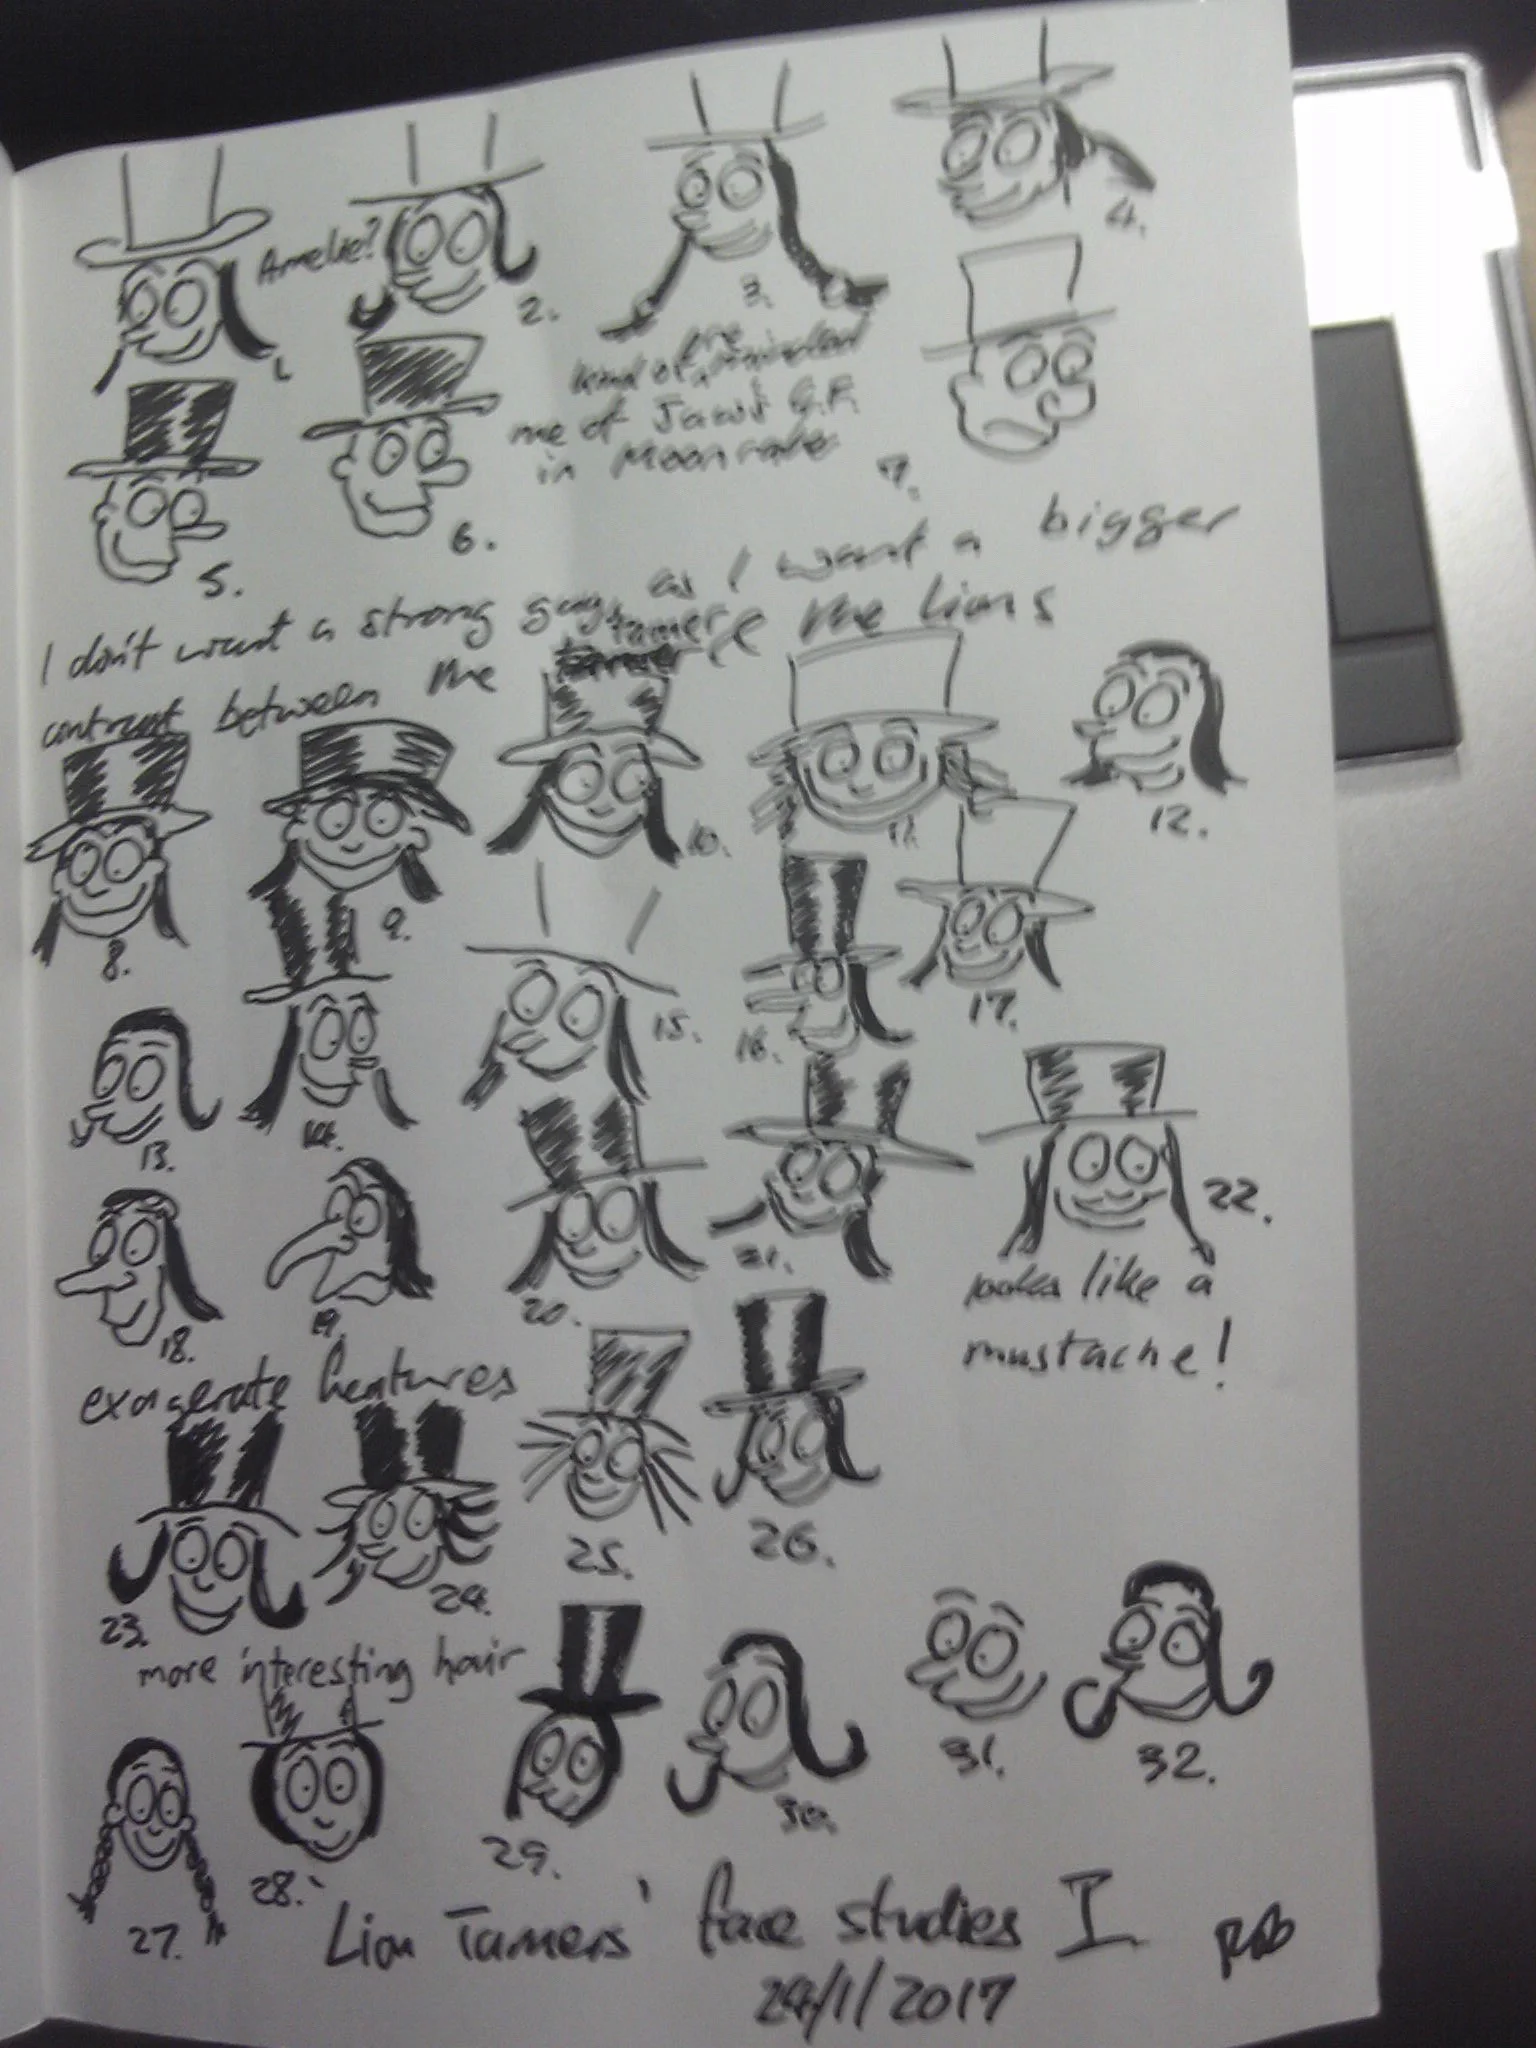 Amelie?
1.
2.
3.
4.
kind of reminded
me of Jaws G.F.
in Moonraker
5.
6.
7.
I don't want a strong guy, as I want a bigger
contrast between the tamer & the lions
8.
9.
10.
11.
12.
13.
14.
15.
16.
17.
18.
19.
20.
21.
22.
looks like a
mustache!
exagerate features
23.
24.
25.
26.
more interesting hair
27.
28.
29.
30.
31.
32.
Lion Tamers' face studies I
24/1/2017